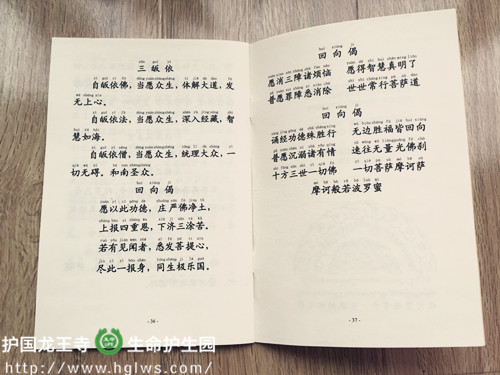 三皈依
自皈依佛，当愿众生，体解大道，发
无上心。
自皈依法，当愿众生，深入经藏，智
慧如海。
自皈依僧，当愿众生，统理大众，一
切无碍，和南圣众。
回向偈
愿以此功德，庄严佛净土，
上报四重恩，下济三涂苦。
若有见闻者，悉发菩提心，
尽此一报身，同生极乐国。
- 36 -
回向偈
愿消三障诸烦恼 愿得智慧真明了
普愿罪障悉消除 世世常行菩萨道
回向偈
诵经功德殊胜行 无边胜福皆回向
普愿沉溺诸有情 速往无量光佛刹
十方三世一切佛 一切菩萨摩诃萨
摩诃般若波罗蜜
- 37 -
护国龙王寺 生命护生园
https://www.hglws.com/